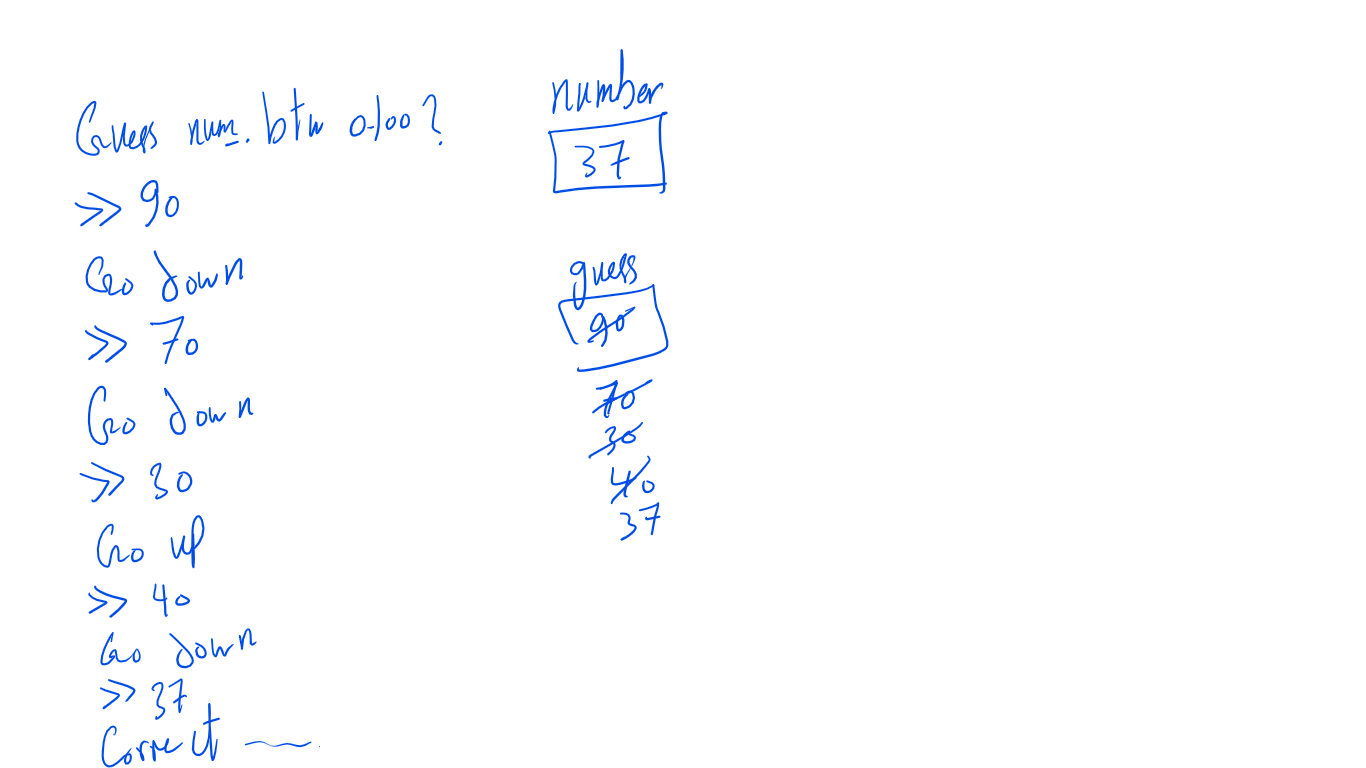 Guess num. btw 0-100?
>> 90
Go down
>> 70
Go down
>> 30
Go up
>> 40
Go down
>> 37
Correct
number
37
guess
90
70
30
40
37